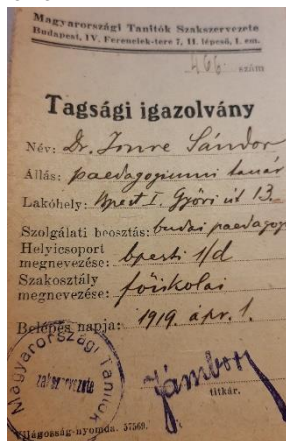 Magyarországi Tanítók Szakszervezete
Budapest, IV. Ferenciek-tere 7, II. lépcső, I. em.
466. szám
Tagsági igazolvány
Név: Dr. Imre Sándor
Állás: paedagogiumi tanár
Lakóhely: Bpest I. Győri út 13.
Szolgálati beosztás: budai paedagog
Helyicsoport megnevezése: bpesti I/d
Szakosztály megnevezése: főiskolai
Belépés napja: 1919. ápr. 1.
Magyarországi Tanítók
szakszervezete
Jámbor
titkár.
Világosság-nyomda. 37569.